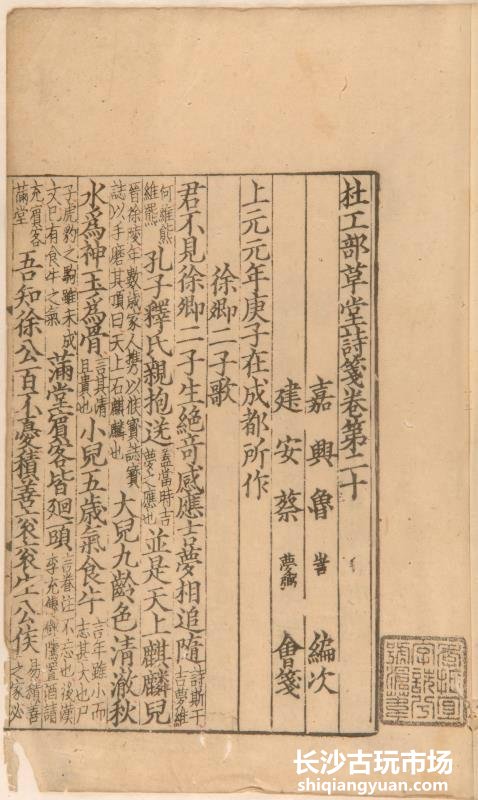 杜工部草堂詩箋卷第二十
嘉興魯 訔 編次
建安蔡 夢弼 會箋
上元元年庚子在成都所作
徐卿二子歌
君不見徐卿二子生絕奇感應吉夢相追隨詩斯干吉夢維
何維熊維羆孔子釋氏親抱送蓋當時吉夢之應也並是天上麒麟兒
晉徐陵年數歲家人携以候寳誌寳誌以手磨其頂曰天上石麒麟也大兒九齡色清澈秋
水爲神玉爲骨言其清且貴也小兒五歲氣食牛言年雖小而志其大也尸
子虎豹之駒雖未成文已有食牛之氣滿堂賓客皆廻頭言眷注不忘也後漢李充傳置酒請
充賓客滿堂吾知徐公百不憂積善衮衮生公侯易積善之家必
長沙古玩市场
shiqiangyuan.com